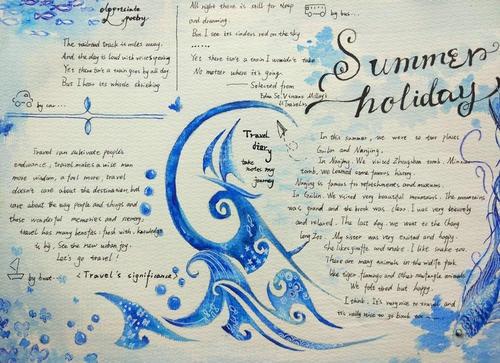 appreciate
poetry
The railroad track is miles away.
And the day is loud with voices speaking
Yet there isn't a train goes by all day
But I hear its whistle shrieking
All night there is still for sleep
and dreaming.
But I see its cinders red on the sky
......
Yes there isn't a train I wouldn't take
No matter where it's going.
—— Selected from
Edna St. Vincent Millay's
《Travel》
by bus...
Summer
holiday
by car...
Travel can cultivate people's
endurance, travel makes a wise man
more wisdom, a fool more, travel
doesn't care about the destination, but
care about the way people and things and
those wonderful memories and scenery,
travel has many benefits: fresh with, knowledge
is by. See the new urban joy.
Let's go travel!
by boat...
<Travel's significance>
Travel
diary
take
notes my
journey
In this summer, we went to two places
Guilin and Nanjing.
In Nanjing. We visited Zhongshan tomb. Min
tomb. We learned some famous history.
Nanjing is famous for refreshments and museums.
In Guilin. We visited very beautiful mountains. The mountains
was grand and the brook was clear. I was very leisurely
and relaxed. The last day. we went to the Chang
long Zoo. My sister was very excited and happy.
She likes giraffe and snake. I like snake too.
There are many animals in the wildlife park.
like tiger flamingo and other animals.
We felt tired but happy.
I think. It's very nice to travel and
it's really nice to go bomb too